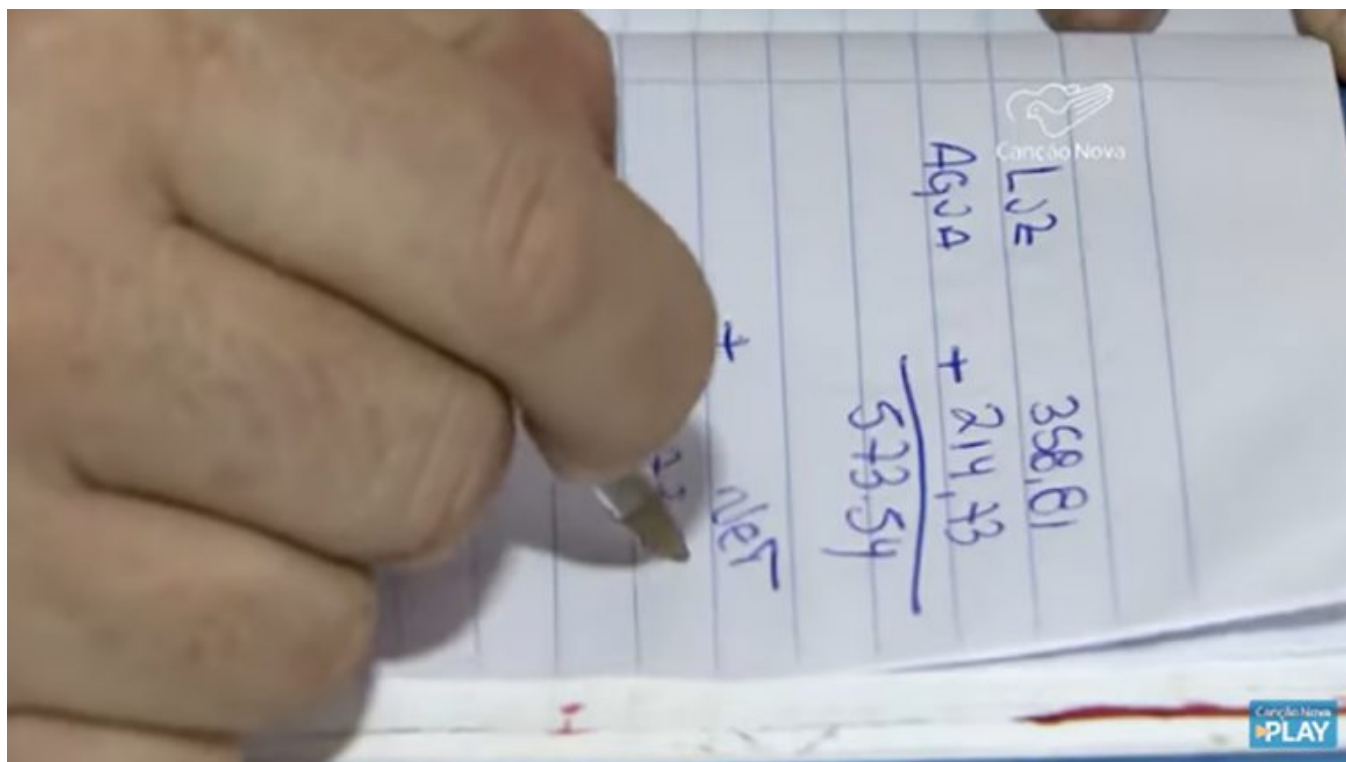 Canção Nova
LUZ 358,81
AGUA + 214,73
573.54
+ NET
Canção Nova
PLAY